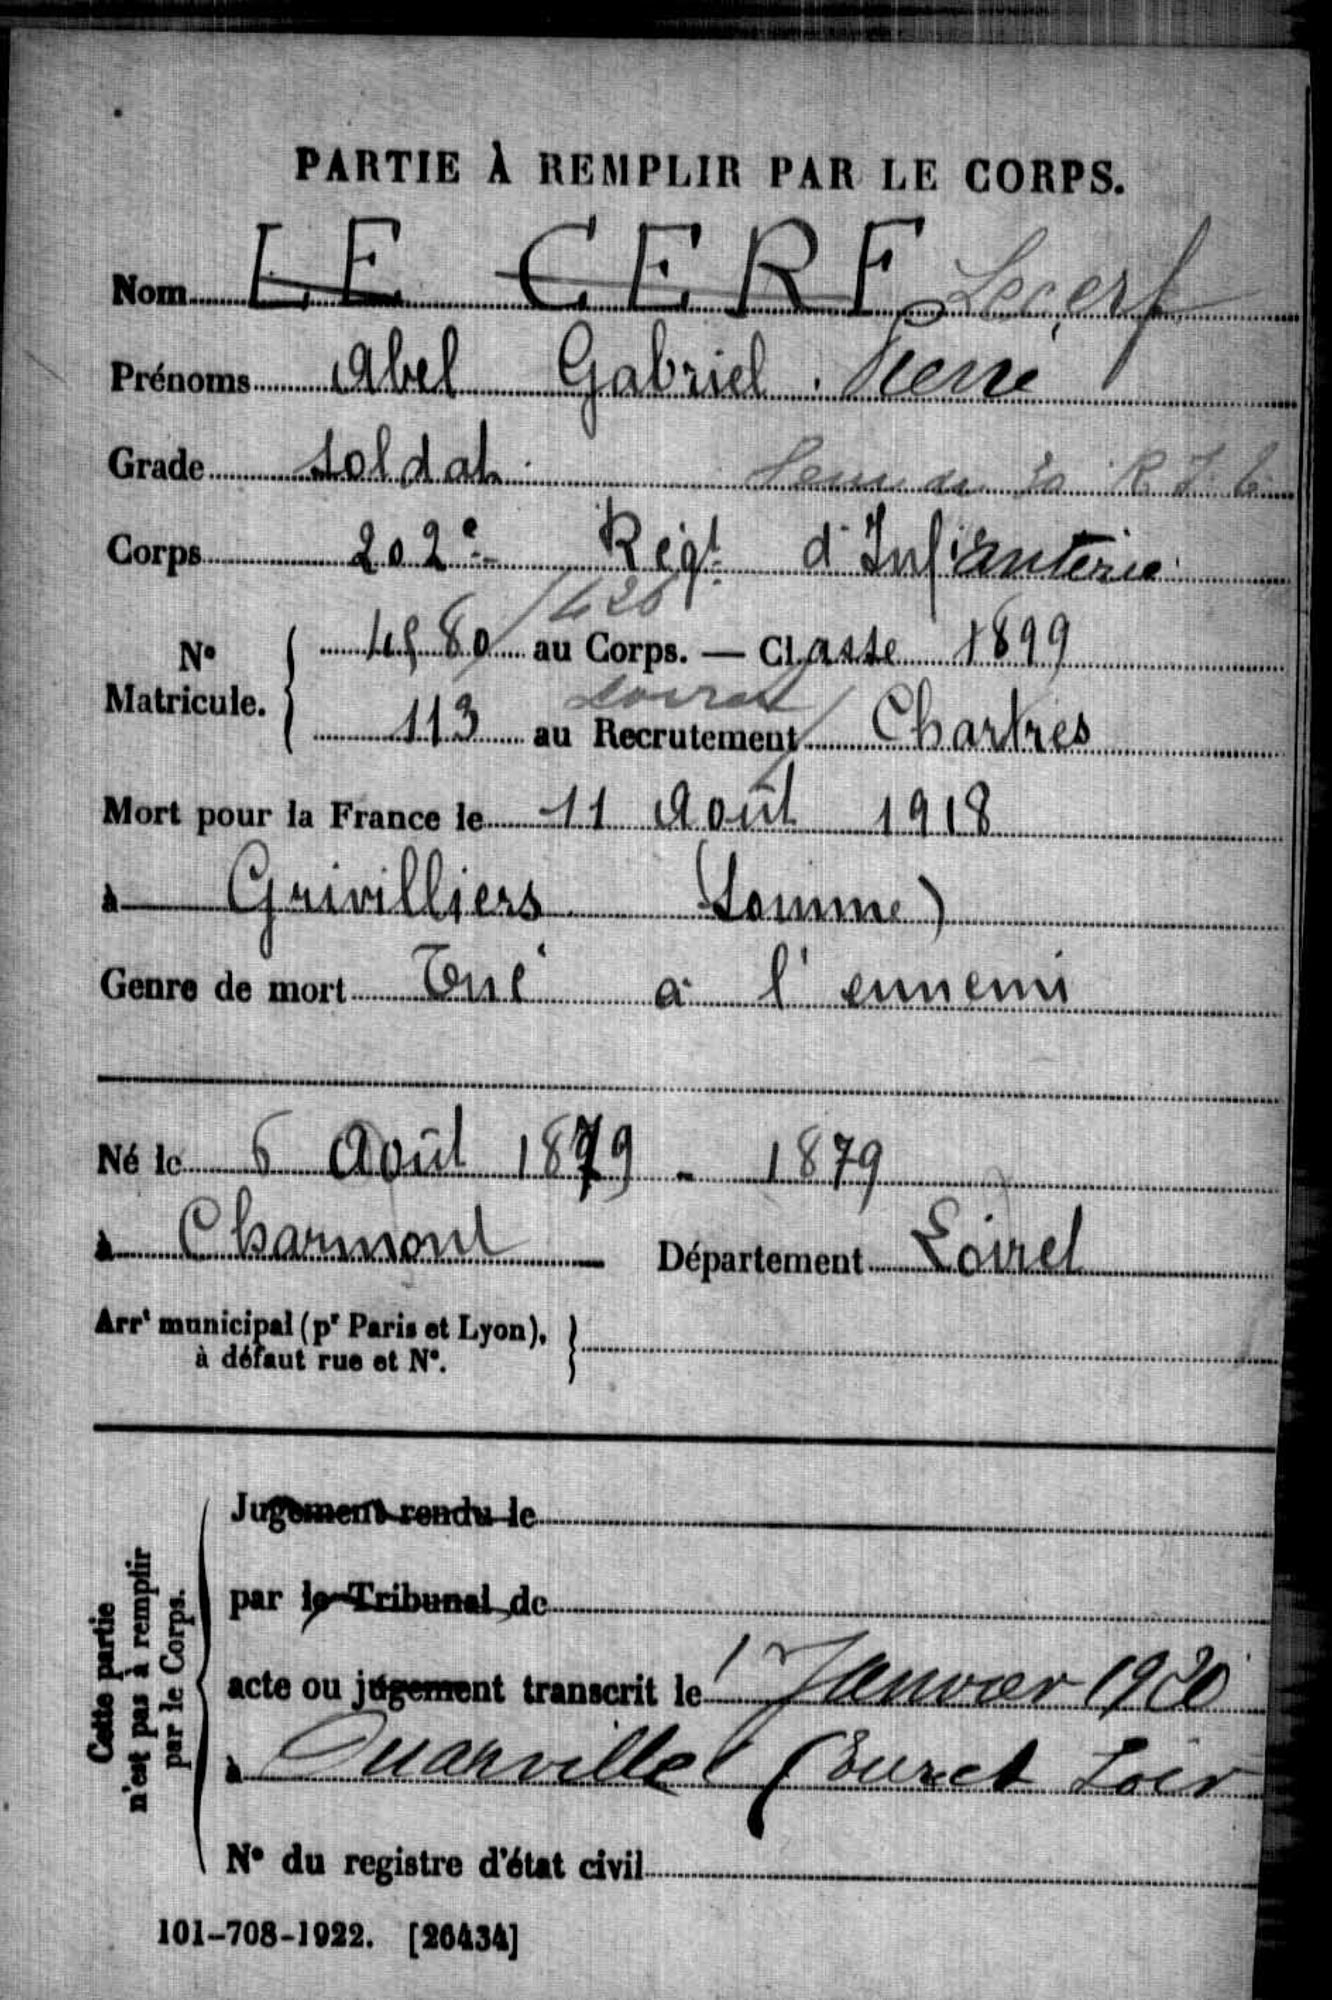 PARTIE À REMPLIR PAR LE CORPS.
Nom LE CERF Lecerf
Prénoms Abel Gabriel. Pierre
Grade Soldat
Corps 202e Régt d'Infanterie
/426
4580 au Corps. — Classe 1899
N°
Matricule.
Loiret
113 au Recrutement Chartres
Mort pour la France le 11 Août 1918
à Grivilliers (Somme)
Genre de mort Tué à l'ennemi
Né le 6 Août 1879 - 1879
à Charmont Département Loiret
Arrt municipal (pr Paris et Lyon),
à défaut rue et N°.
Cette partie
n'est pas à remplir
par le Corps.
Jugement rendu le
par le Tribunal de
acte ou jugement transcrit le 1 Janvier 1920
à Ouarville (Eure et Loir
N° du registre d'état civil
101-708-1922. [26434]